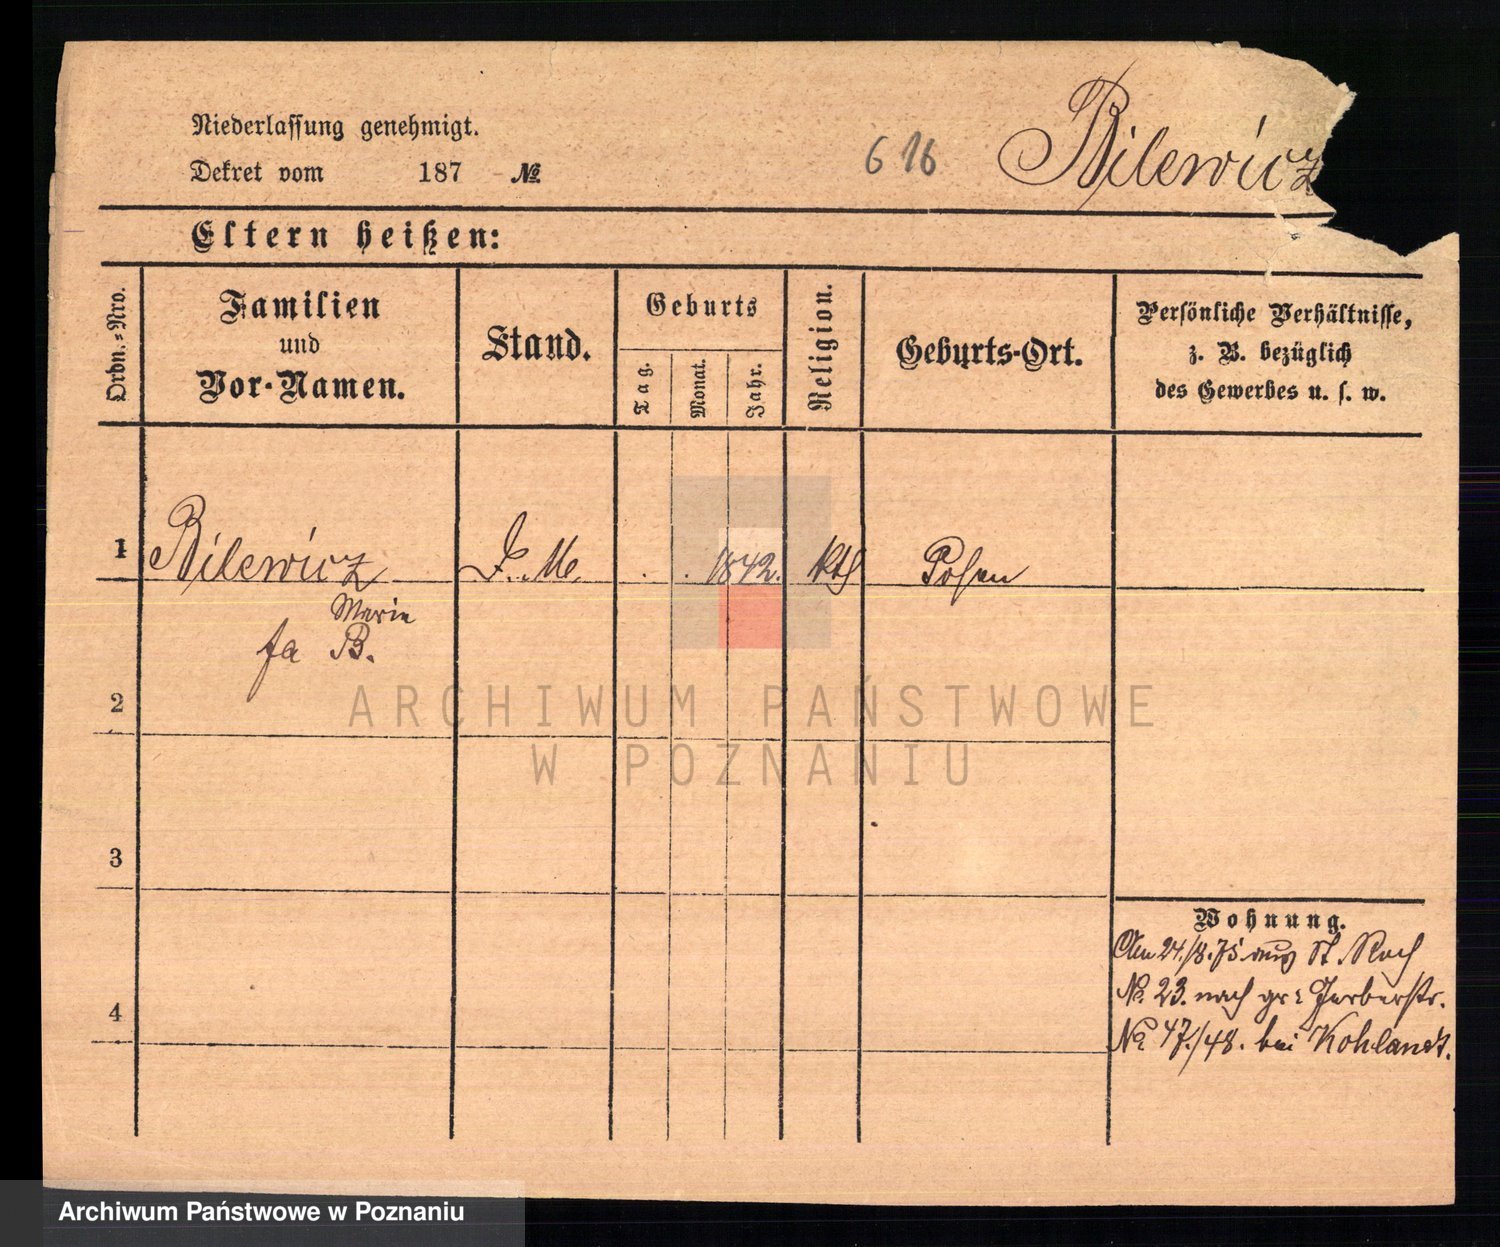 Niederlassung genehmigt.
Dekret vom 187 №
616
Bilewicz
Eltern heißen:
Ordn.-Nro.
Familien
und
Vor-Namen.
Stand.
Geburts
Tag.
Monat.
Jahr.
Religion.
Geburts-Ort.
Persönliche Verhältnisse,
z. B. bezüglich
des Gewerbes u. s. w.
1 Bilewicz D. M. . . 1842. kth Posen
Marie
fa B.
2
3
4
Wohnung.
Am 24./8.75 aus St. Roch
No. 23. nach gr: Gerberstr.
No 47./48. bei Kohlandt.
ARCHIWUM PAŃSTWOWE
W POZNANIU
Archiwum Państwowe w Poznaniu